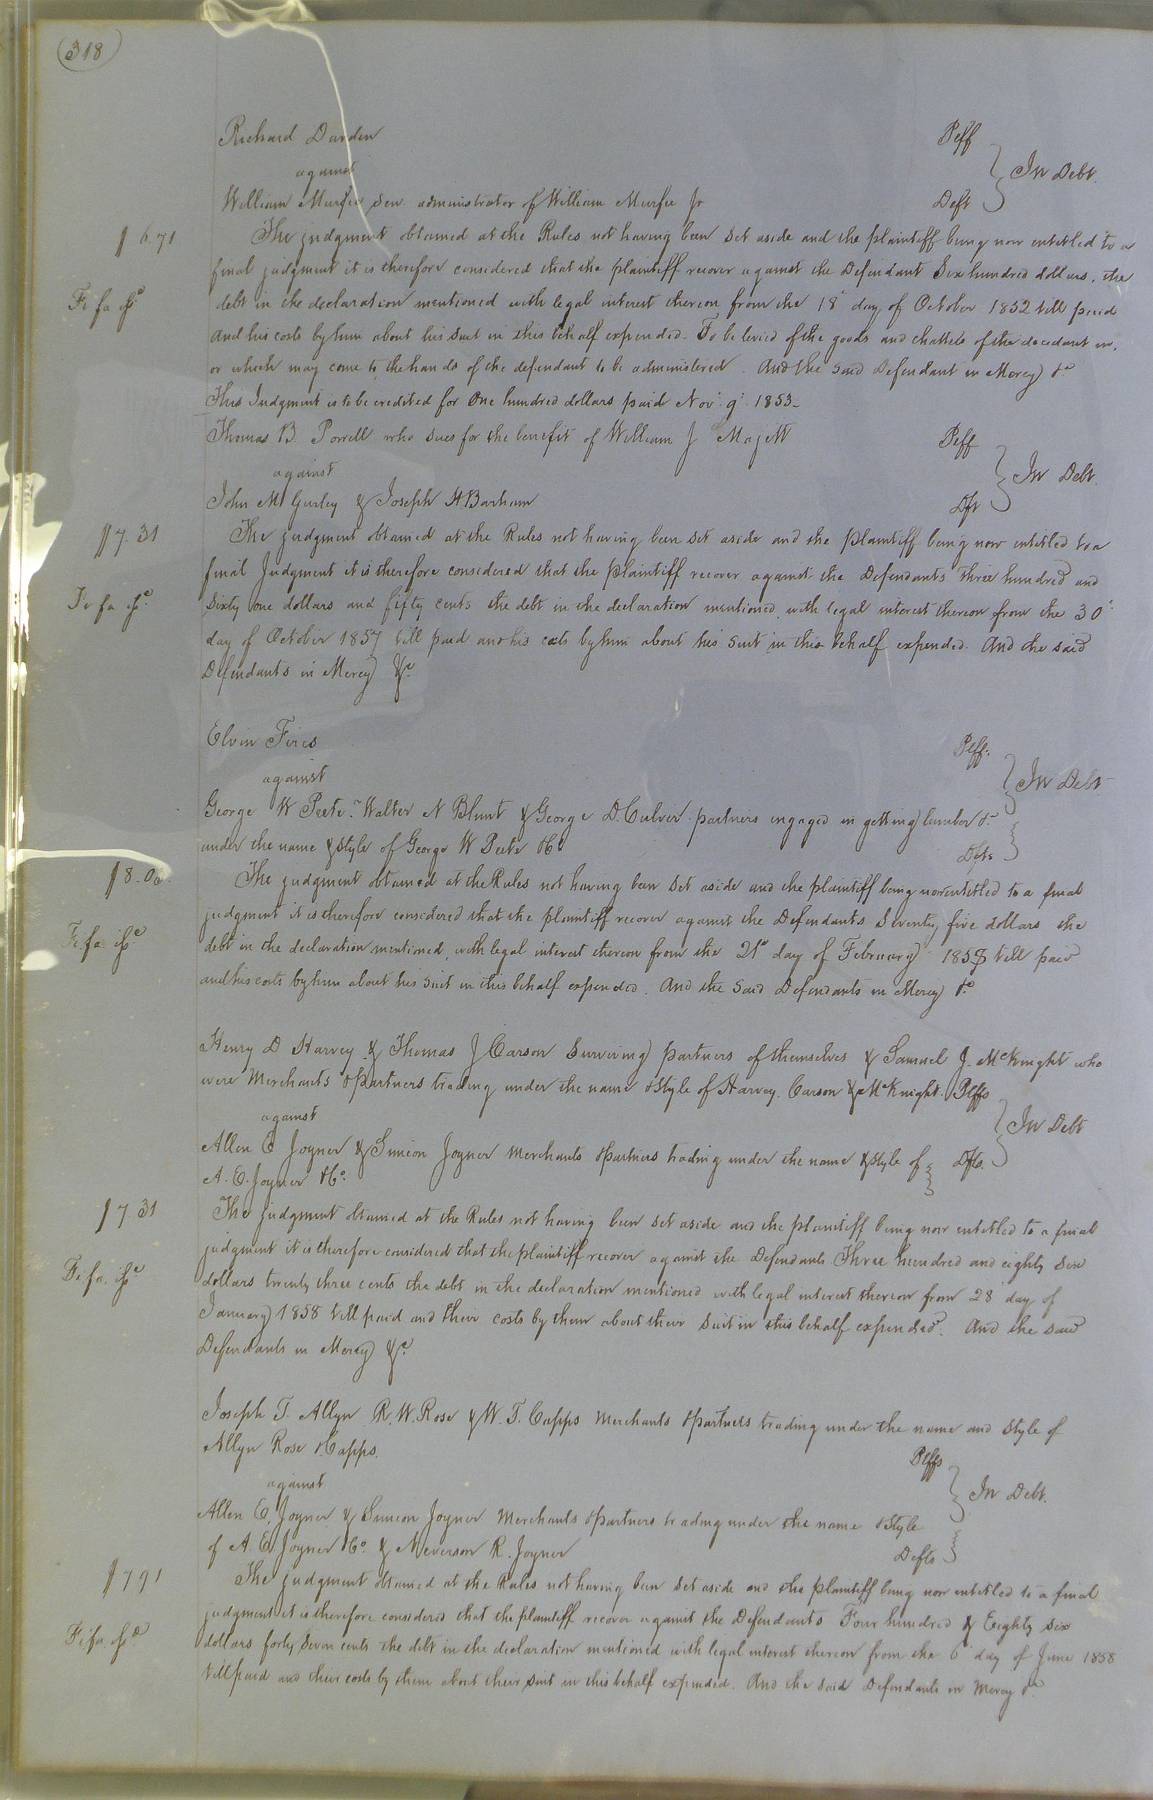 318
Richard Darden Plff
against In Debt.
William Murfee Sen administrator of William Murfee Jr Deft
$ 6.71 The judgment obtained at the Rules not having been set aside and the plaintiff being now entitled to a
final judgment it is therefore considered that the plaintiff recover against the Defendant Six hundred dollars, the
Fi fa debt in the declaration mentioned with legal interest thereon from the 18 day of October 1852 till paid
and his costs by him about his suit in this behalf expended. To be levied of the goods and chattels of the decedent in,
or which may come to the hands of the defendant to be administered. And the said Defendant in Mercy &c
This Judgment is to be credited for One hundred dollars paid Nov. 9. 1853
Thomas B. Porrell who sues for the benefit of William J Majett Plff
against In Debt.
John M Gurley & Joseph H Barham Dft
$7.31 The judgment obtained at the Rules not having been set aside and the plaintiff being now entitled to a
final Judgment it is therefore considered that the plaintiff recover against the Defendants three hundred and
Fi fa Sixty one dollars and fifty cents the debt in the declaration mentioned, with legal interest thereon from the 30
day of October 1857 till paid and his costs by him about his suit in this behalf expended. And the said
Defendants in Mercy &c.
Elvin Fires Plff.
against In Debt
George W Peete. Walter N Blunt & George D. Culver partners engaged in getting lumber &c
under the name & style of George W Peete & Co Defts
$8.06 The judgment obtained at the Rules not having been set aside and the plaintiff being now entitled to a final
judgment it is therefore considered that the plaintiff recover against the Defendants Seventy five dollars the
Fi. fa. debt in the declaration mentioned, with legal interest thereon from the 21st day of February 1858 till paid
and his costs by him about his suit in this behalf expended. And the said Defendants in Mercy &c
Henry D Harvey & Thomas J Carson surviving partners of themselves & Samuel J. McKnight who
were Merchants & partners trading under the name & style of Harvey, Carson & McKnight. Plffs
against In Debt
Allen E Joyner & Simeon Joyner Merchants & partners trading under the name & style of Defts.
A. E. Joyner & Co.
$7 31 The judgment obtained at the Rules not having been set aside and the plaintiff being now entitled to a final
judgment it is therefore considered that the plaintiff recover against the Defendants Three hundred and eighty six
Fi. fa. dollars twenty three cents the debt in the declaration mentioned with legal interest thereon from 28 day of
January 1858 till paid and their costs by them about their suit in this behalf expended. And the said
Defendants in Mercy &c
Joseph T. Allyn R. W. Rose & W. T. Capps Merchants & partners trading under the name and style of
Allyn Rose & Capps. Plffs
against In Debt.
Allen E. Joyner & Simeon Joyner Merchants & partners trading under the name & Style
of A E Joyner & Co. & Neverson R. Joyner Defts
$7 91 The judgment obtained at the Rules not having been set aside and the plaintiff being now entitled to a final
judgment it is therefore considered that the plaintiff recover against the Defendants Four hundred & Eighty six
Fi. fa. dollars forty seven cents the debt in the declaration mentioned with legal interest thereon from the 6 day of June 1858
till paid and their costs by them about their suit in this behalf expended. And the said Defendants in Mercy &c